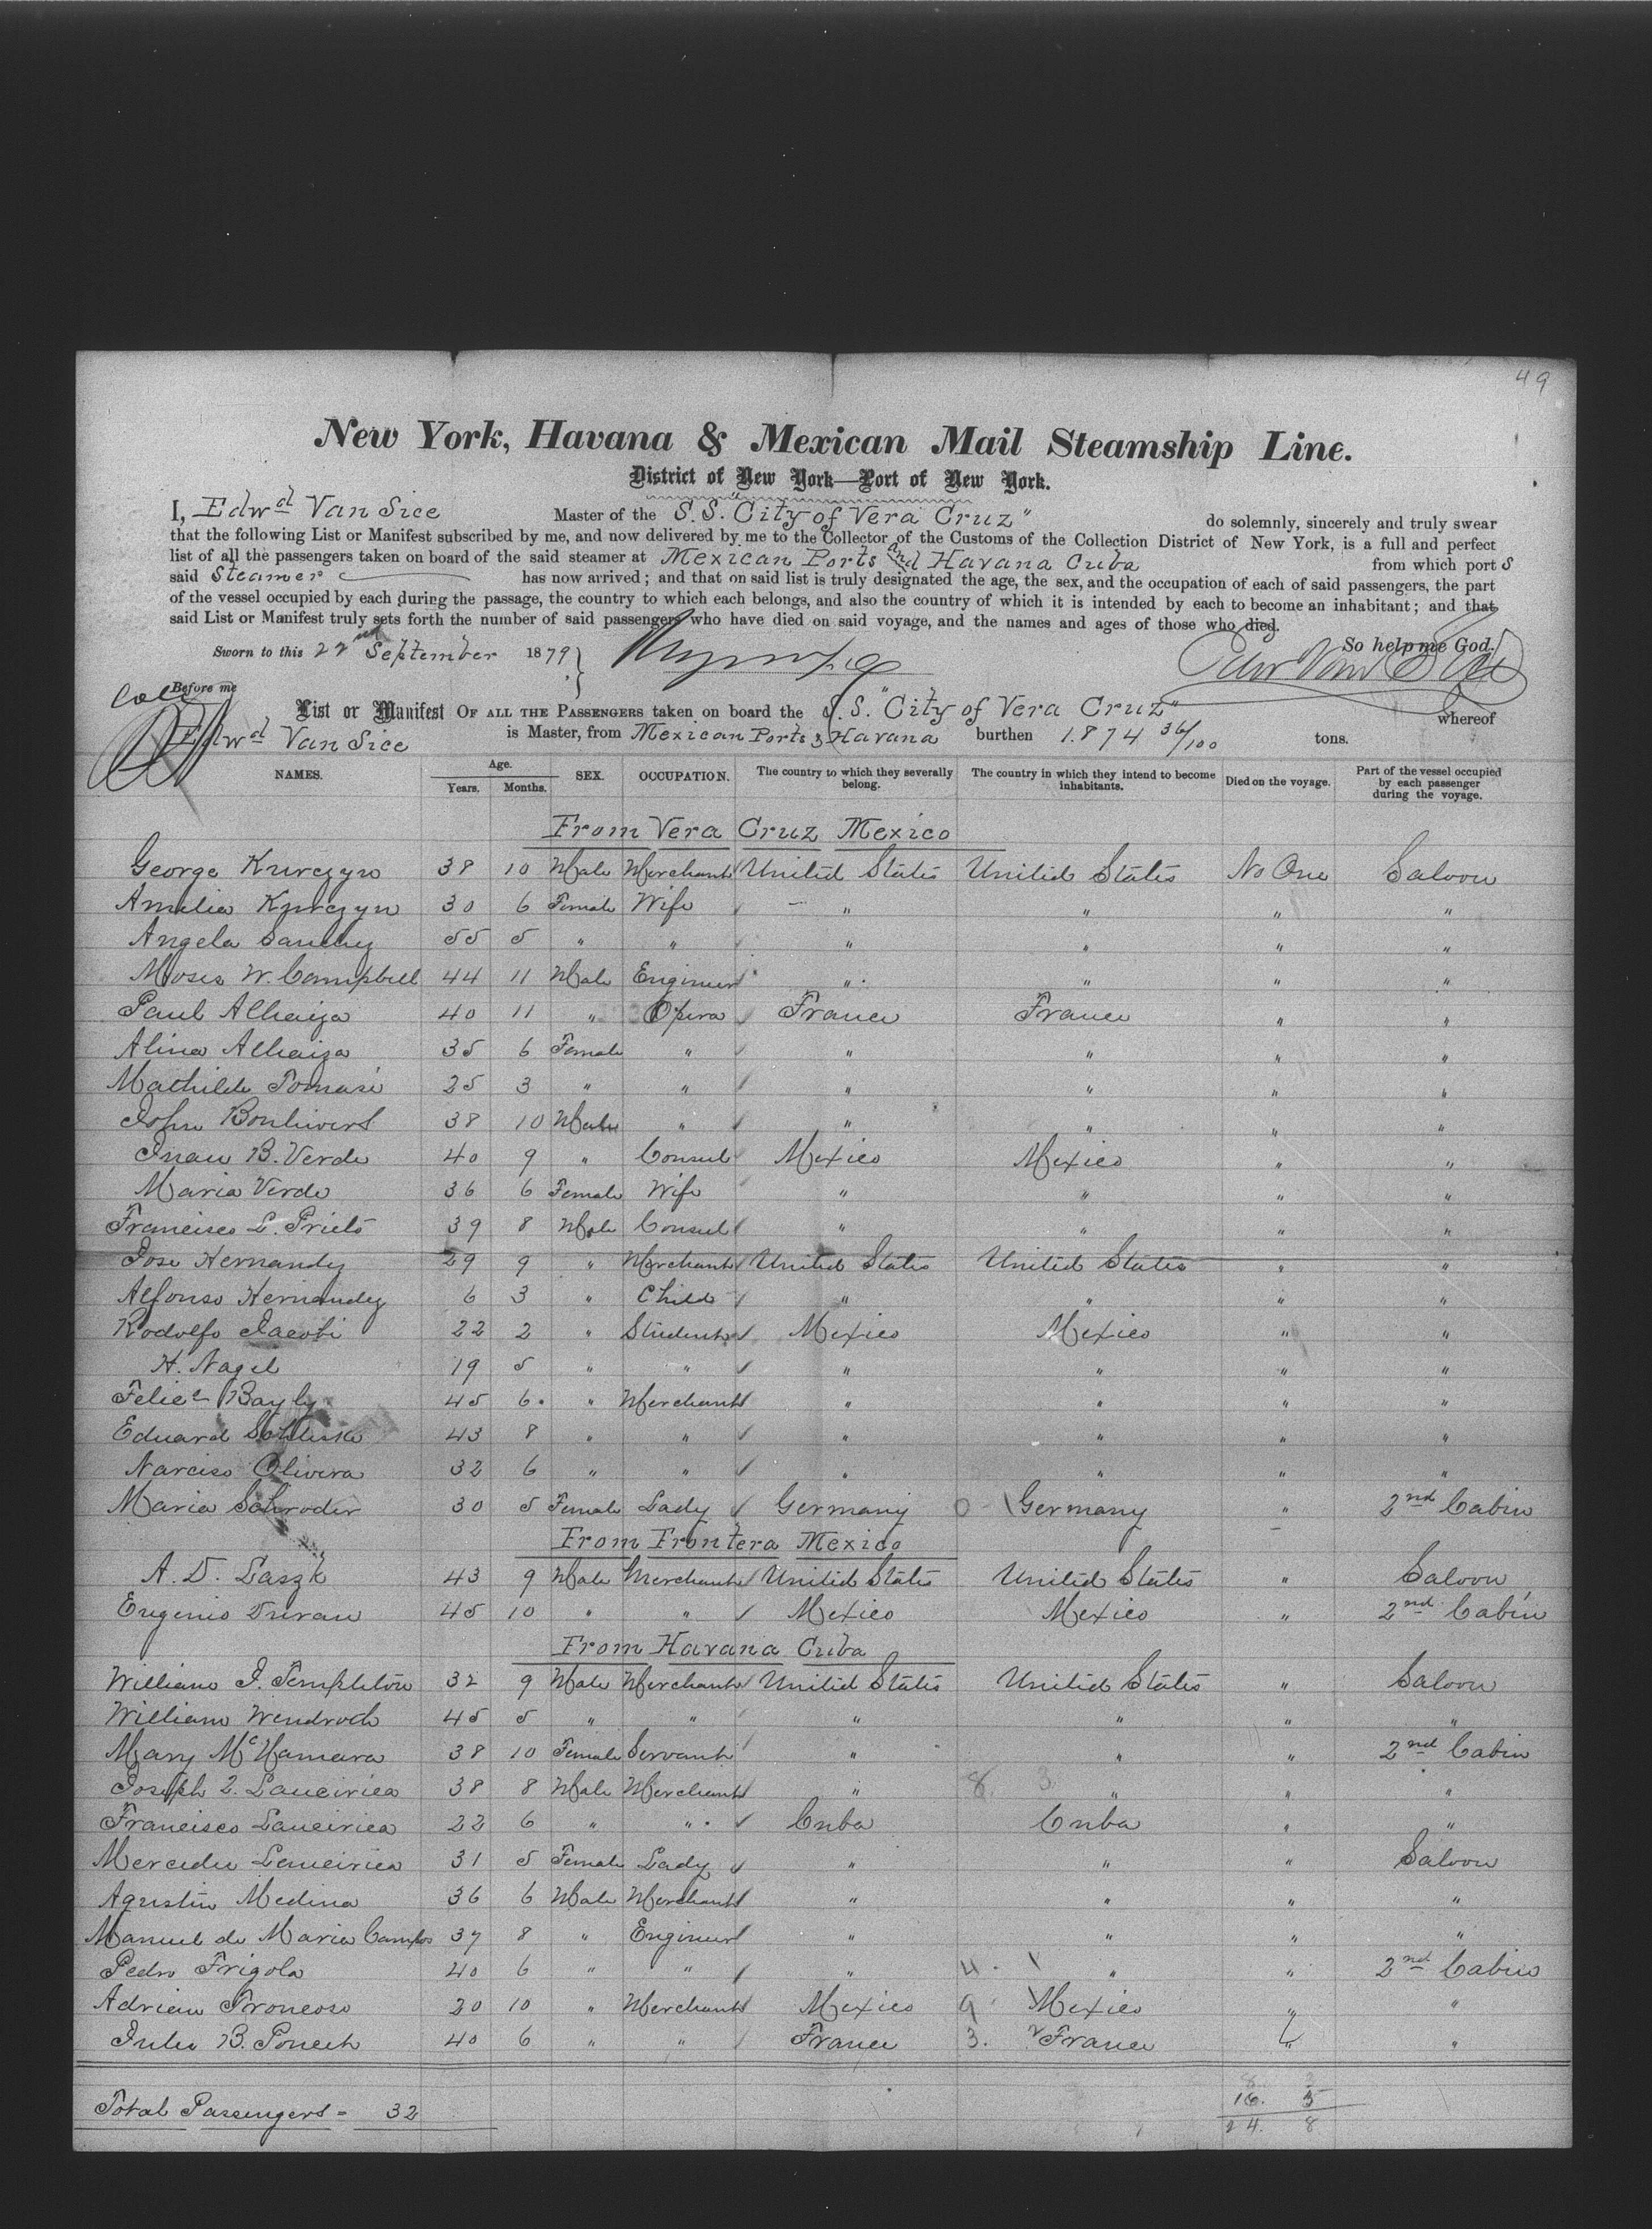 49
New York, Havana & Mexican Mail Steamship Line.
District of New York—Port of New York.
I, Edwd Van Sice Master of the S.S. "City of Vera Cruz" do solemnly, sincerely and truly swear
that the following List or Manifest subscribed by me, and now delivered by me to the Collector of the Customs of the Collection District of New York, is a full and perfect
list of all the passengers taken on board of the said steamer at Mexican Ports and Havana Cuba from which port s
said Steamer has now arrived; and that on said list is truly designated the age, the sex, and the occupation of each of said passengers, the part
of the vessel occupied by each during the passage, the country to which each belongs, and also the country of which it is intended by each to become an inhabitant; and that
said List or Manifest truly sets forth the number of said passengers who have died on said voyage, and the names and ages of those who died.
So help me God.
Sworn to this 22nd September 1879
Before me
List or Manifest OF ALL THE PASSENGERS taken on board the S.S. "City of Vera Cruz" whereof
Edwd Van Sice is Master, from Mexican Ports & Havana burthen 1.874 36/100 tons.
NAMES. Age. Years. Months. SEX. OCCUPATION. The country to which they severally belong. The country in which they intend to become inhabitants. Died on the voyage. Part of the vessel occupied by each passenger during the voyage.
From Vera Cruz Mexico
George Kurczyn 38 10 Male Merchant United States United States No One Saloon
Amelia Kurczyn 30 6 Female Wife " " " "
Angela 55 5 " " " " " "
Moses W. Campbell 44 11 Male Engineer " " " "
Paul Alhaiza 40 11 " Opera France France " "
Alina Alhaiza 35 6 Female " " " " "
Mathilde Tomasi 25 3 " " " " " "
John 38 10 Male " " " " "
Juan B. Verde 40 9 " Consul Mexico Mexico " "
Maria Verde 36 6 Female Wife " " " "
Francisco L. Prieto 39 8 Male Consul " " " "
Jose Hernandez 29 9 " Merchant United States United States " "
Alfonso Hernandez 6 3 " Child " " " "
Rodolfo Jacobi 22 2 " Student Mexico Mexico " "
H. Nagel 19 5 " " " " " "
Bayly 45 6 " Merchant " " " "
Eduard 43 8 " " " " " "
Narciso Olivera 32 6 " " " " " "
Maria Schroder 30 5 Female Lady Germany 0 Germany " 2nd Cabin
From Frontera Mexico
A. D. Laszk 43 9 Male Merchant United States United States " Saloon
Eugenio Duran 45 10 " " Mexico Mexico " 2nd Cabin
From Havana Cuba
William J. Templeton 32 9 Male Merchant United States United States " Saloon
William 45 5 " " " " " "
Mary McNamara 38 10 Female Servant " " " 2nd Cabin
Joseph 2. Lancirica 38 8 Male Merchant " 8. 3 " " "
Francisco Lancirica 22 6 " " Cuba Cuba " "
Mercedes Lancirica 31 5 Female Lady " " " Saloon
Agustin Medina 36 6 Male Merchant " " " "
Manuel de Maria Campos 37 8 " Engineer " " " "
Pedro Frigola 40 6 " " " 4. 1 " " 2nd Cabin
Adrian Troncoso 20 10 " Merchant Mexico 9 Mexico " "
Jules B. 40 6 " " France 3. France " "
8 3
16. 5
24. 8
Total Passengers = 32